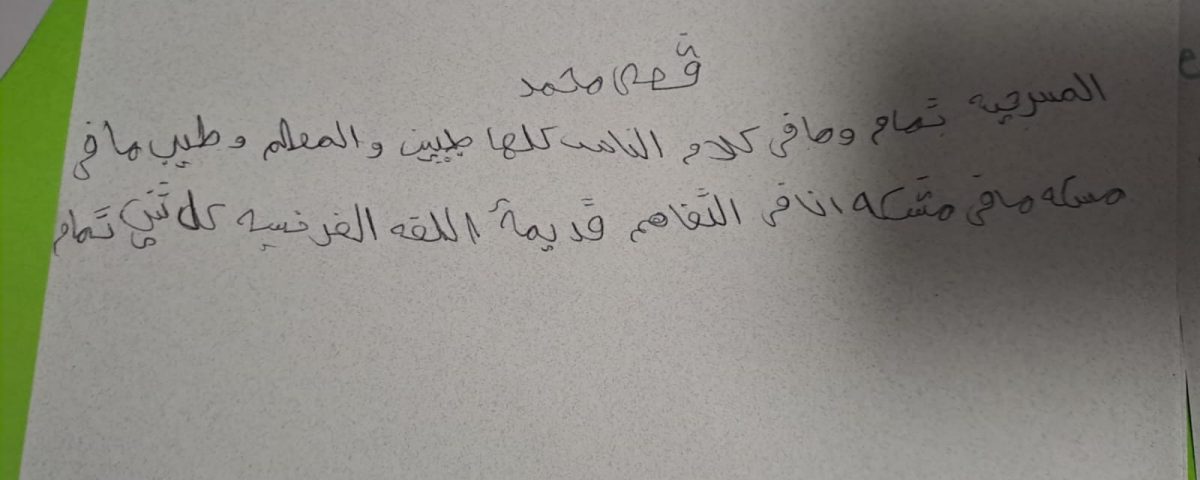 قصي محمد
المسرحيه تمام وما في كلام الناس كلها طيبين والمعلم وطيب ما في
مسكله ما في مشكه انا في التفاهم قديمة اللقه الفرنسيه كل شي تمام